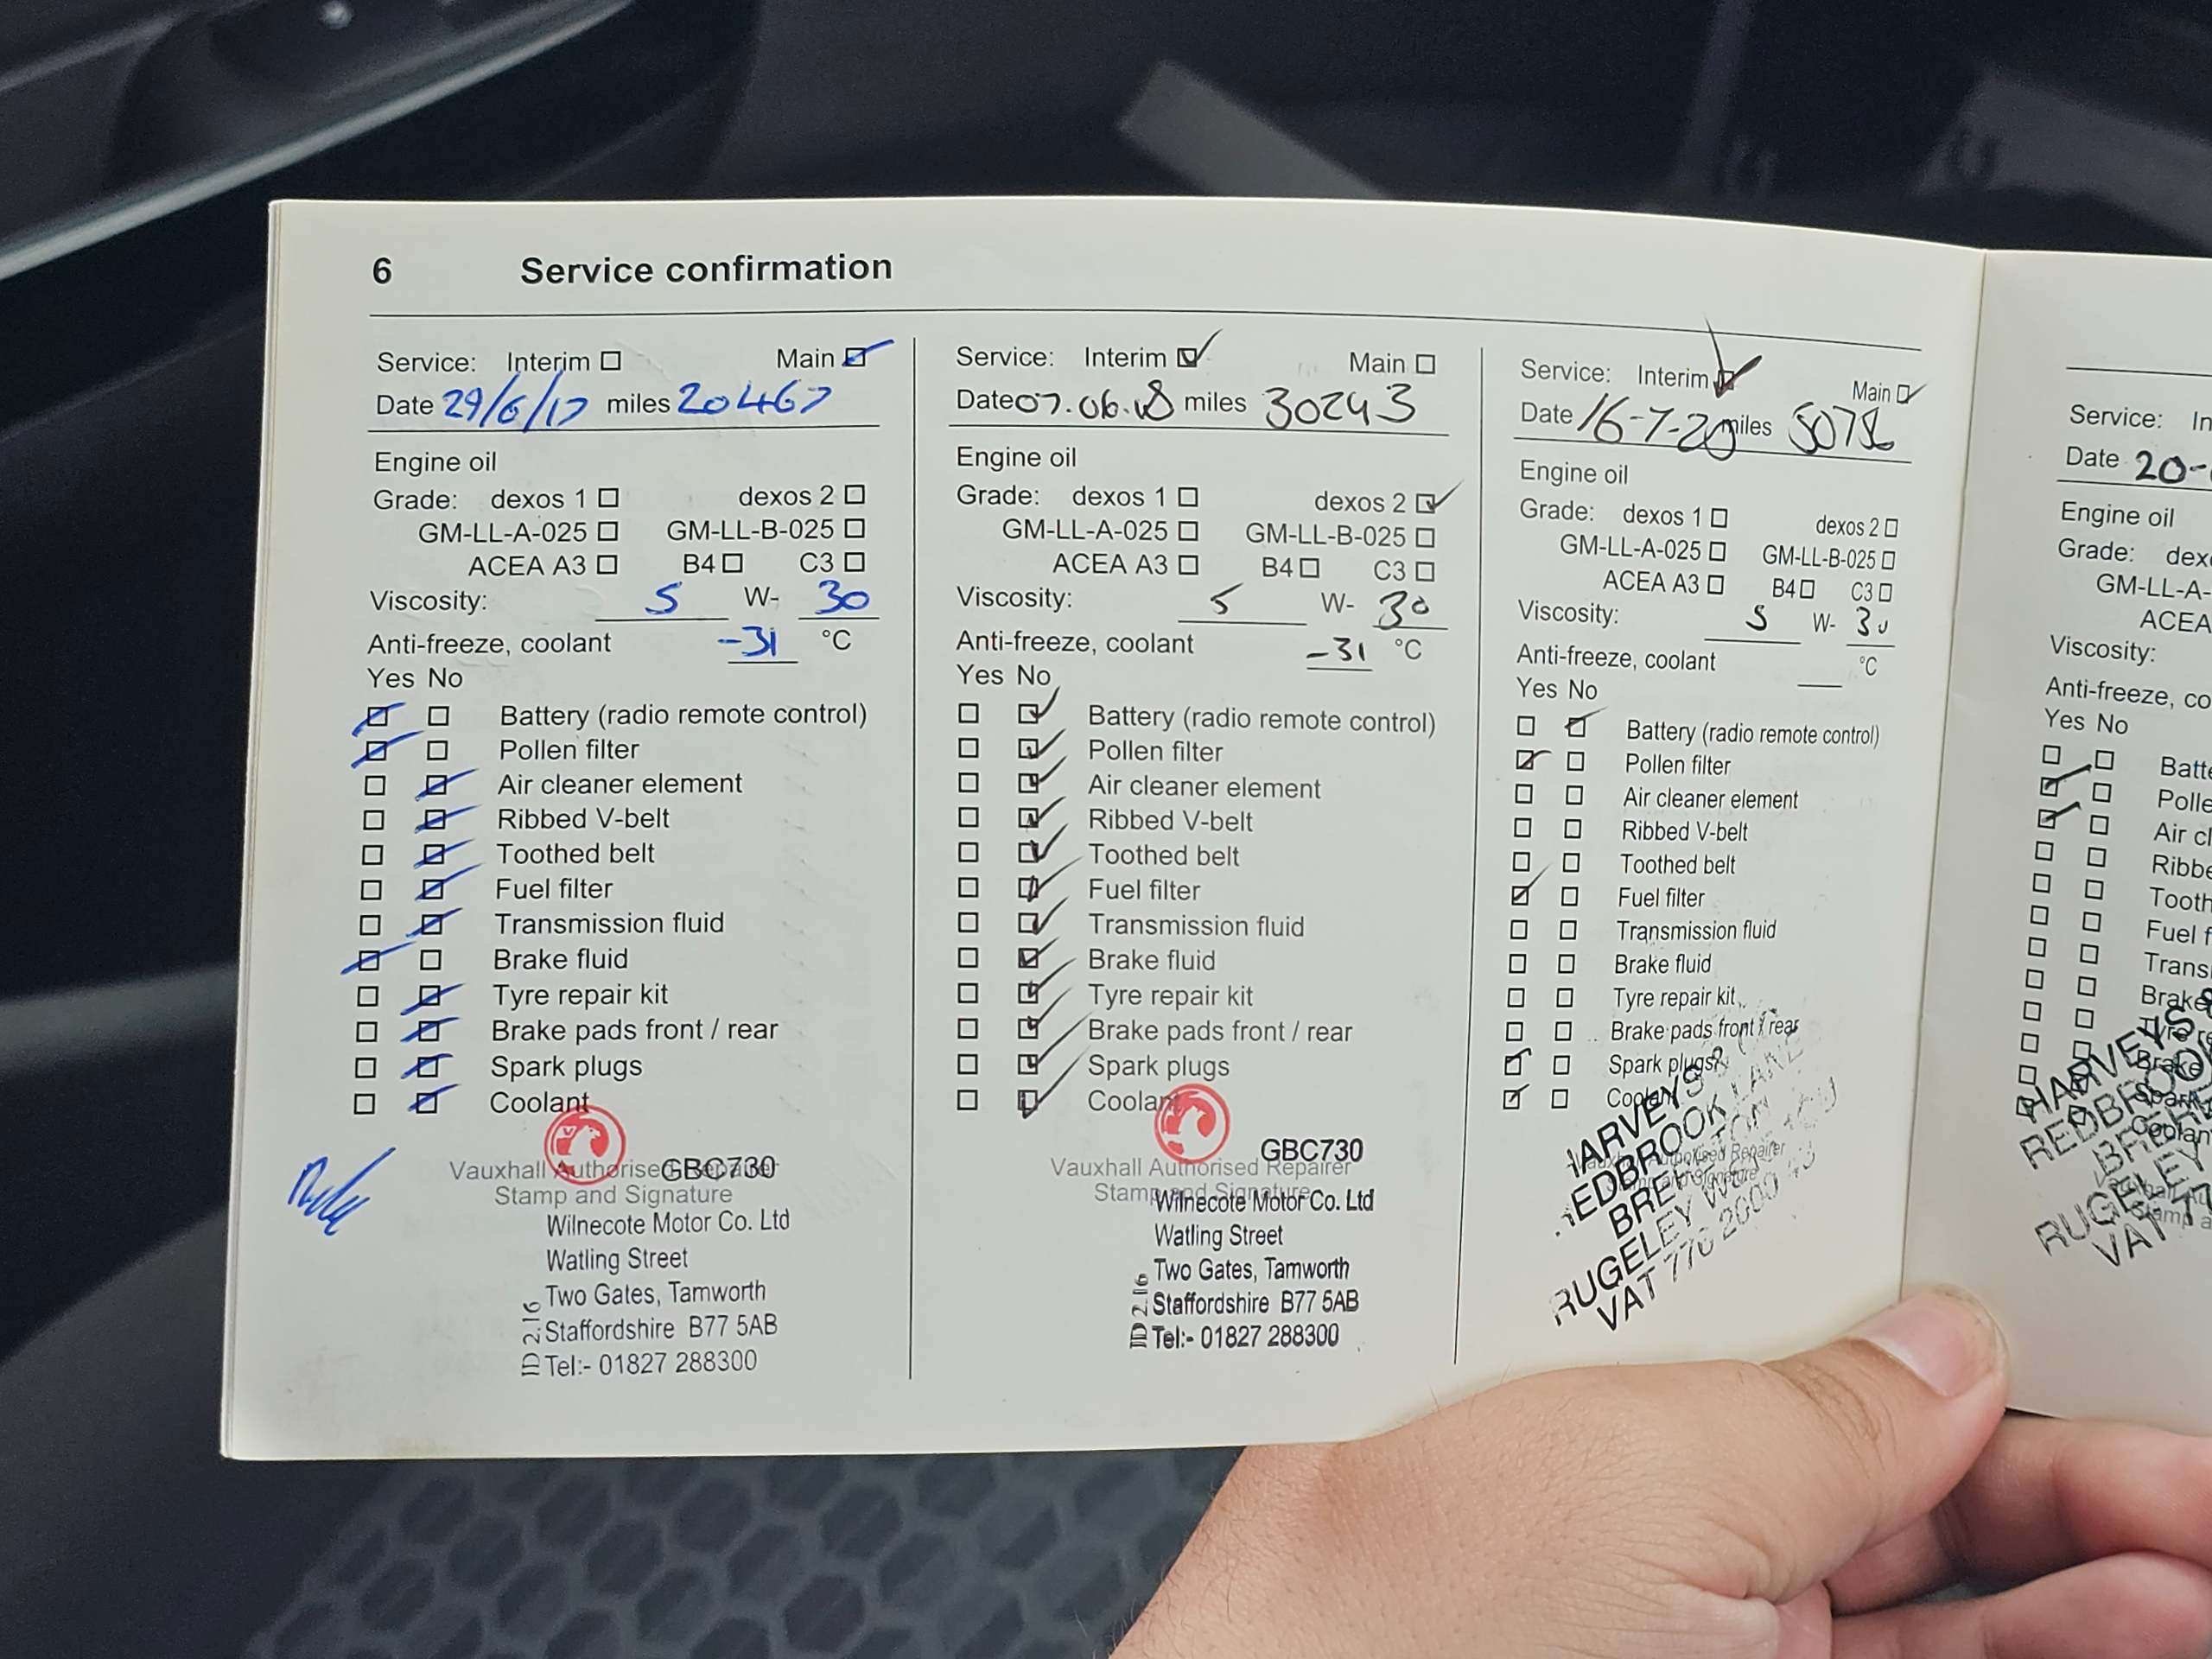 6 Service confirmation
Service: Interim Main
Date 29/6/17 miles 20467
Engine oil
Grade: dexos 1 dexos 2
GM-LL-A-025 GM-LL-B-025
ACEA A3 B4 C3
Viscosity: 5 W- 30
Anti-freeze, coolant -31 °C
Yes No
Battery (radio remote control)
Pollen filter
Air cleaner element
Ribbed V-belt
Toothed belt
Fuel filter
Transmission fluid
Brake fluid
Tyre repair kit
Brake pads front / rear
Spark plugs
Coolant
Vauxhall Authorised Repairer
GBC730
Stamp and Signature
Wilnecote Motor Co. Ltd
Watling Street
Two Gates, Tamworth
Staffordshire B77 5AB
Tel:- 01827 288300
ID 2.16
Service: Interim Main
Date 07.06.18 miles 30243
Engine oil
Grade: dexos 1 dexos 2
GM-LL-A-025 GM-LL-B-025
ACEA A3 B4 C3
Viscosity: 5 W- 30
Anti-freeze, coolant -31 °C
Yes No
Battery (radio remote control)
Pollen filter
Air cleaner element
Ribbed V-belt
Toothed belt
Fuel filter
Transmission fluid
Brake fluid
Tyre repair kit
Brake pads front / rear
Spark plugs
Coolant
GBC730
Vauxhall Authorised Repairer
Stamp and Signature
Wilnecote Motor Co. Ltd
Watling Street
Two Gates, Tamworth
Staffordshire B77 5AB
Tel:- 01827 288300
ID 2.16
Service: Interim Main
Date 16-7-20 miles
Engine oil
Grade: dexos 1 dexos 2
GM-LL-A-025 GM-LL-B-025
ACEA A3 B4 C3
Viscosity: 5 W- 30
Anti-freeze, coolant °C
Yes No
Battery (radio remote control)
Pollen filter
Air cleaner element
Ribbed V-belt
Toothed belt
Fuel filter
Transmission fluid
Brake fluid
Tyre repair kit
Brake pads front / rear
Spark plugs
Coolant
Authorised Repairer
HARVEYS
REDBROOK LANE
RUGELEY
VAT
Service: In
Date 20-
Engine oil
Grade: dex
GM-LL-A-
ACEA
Viscosity:
Anti-freeze, co
Yes No
Batte
Polle
Air cl
Ribbe
Tooth
Fuel f
Trans
Brake
Tyre re
Brake
Spark
Coolan
HARVEYS
REDBROOK
RUGELEY
VAT